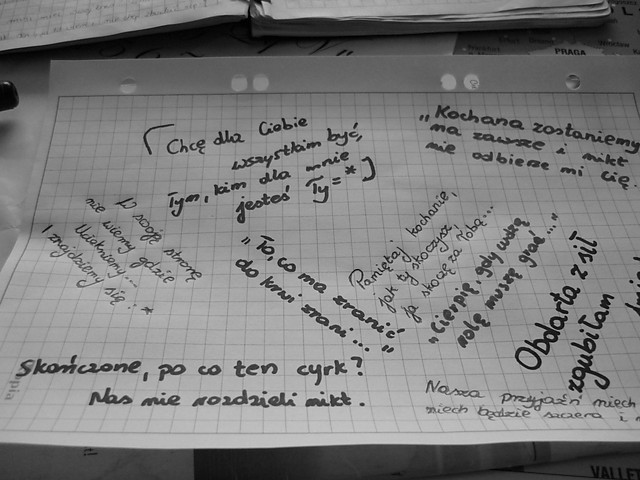 PRAGA
Chcę dla Ciebie
wszystkim być,
Tym, kim dla mnie
jesteś Ty = *
„Kochana zostaniemy
na zawsze i nikt
nie odbierze mi Cię.
W swoją stronę
nie wiemy gdzie
Uciekniemy...
I znajdziemy się. *
„To, co ma zranić
do krwi zrani..."
Pamiętaj kochanie,
jak ty skoczysz,
ja skoczę za Tobą...
„Cierpię, gdy wciąż
rolę muszę grać..."
Obdarta z sił
zgubiłam
Skończone, po co ten cyrk?
Nas nie rozdzieli nikt.
Nasza przyjaźń niech
niech będzie szczera i
VALLET